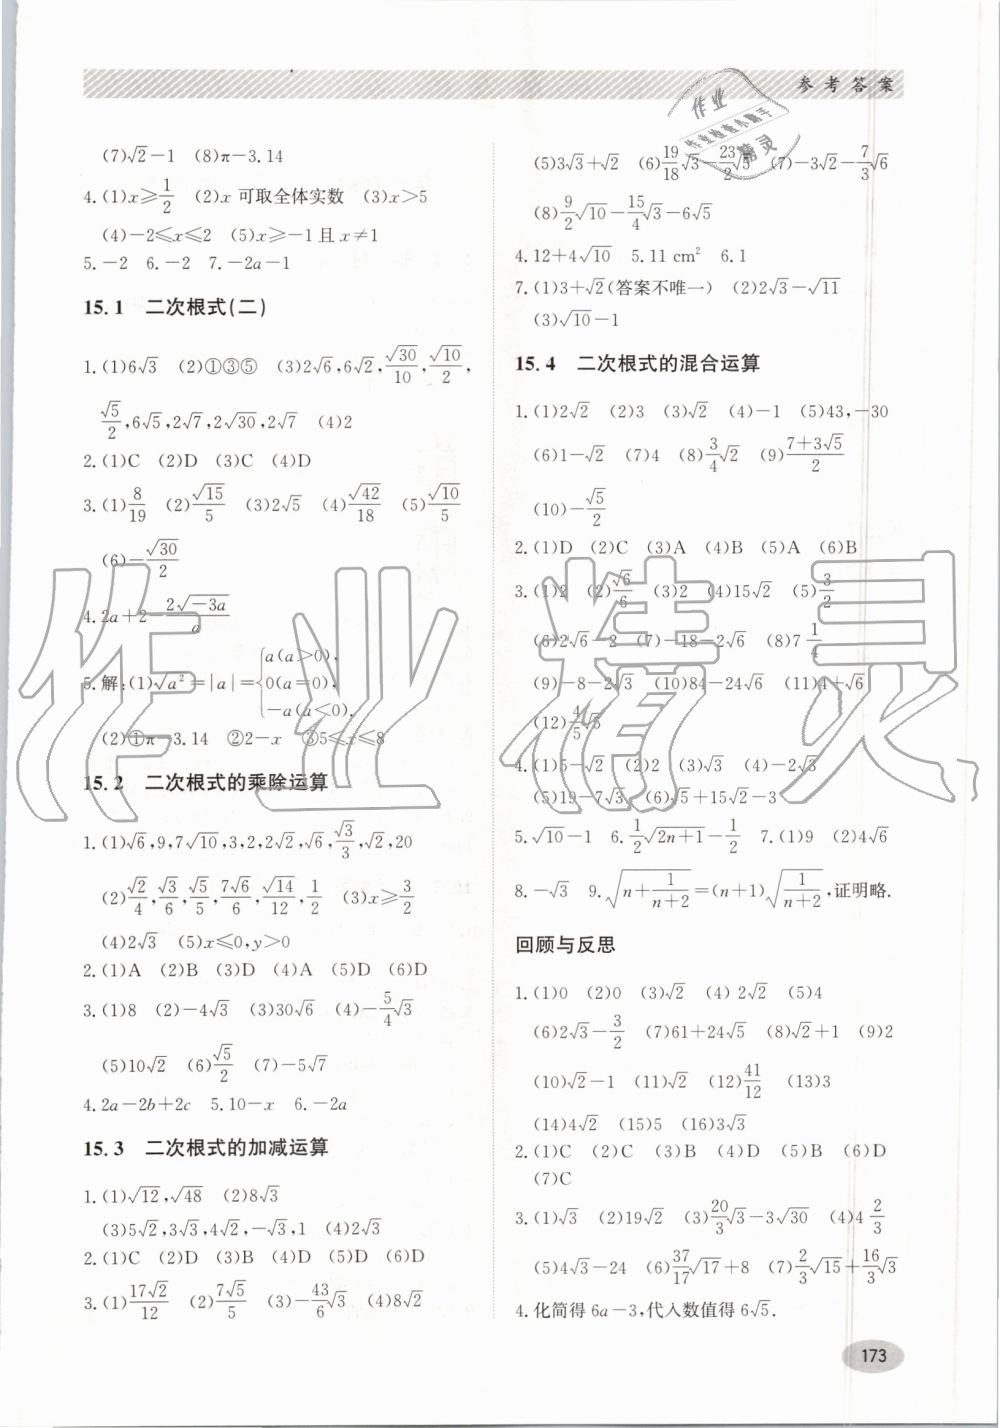 参考答案
(7)√2－1 (8)π－3.14
4.(1)x≥1/2 (2)x 可取全体实数 (3)x＞5
(4)－2≤x≤2 (5)x≥－1 且 x≠1
5.－2 6.－2 7.－2a－1
15.1 二次根式(二)
1.(1)6√3 (2)①③⑤ (3)2√6,6√2,√30/10,√10/2,
√5/2,6√5,2√7,2√30,2√7 (4)2
2.(1)C (2)D (3)C (4)D
3.(1)8/19 (2)√15/5 (3)2√5 (4)√42/18 (5)√10/5
(6)－√30/2
4.2a＋2－2√－3a/a
5.解:(1)√a²＝|a|＝{a(a＞0),
0(a＝0),
－a(a＜0).
(2)①π－3.14 ②2－x ③5≤x≤8
15.2 二次根式的乘除运算
1.(1)√6,9,7√10,3,2,2√2,√6,√3/3,√2,20
(2)√2/4,√3/6,√5/5,7√6/6,√14/12,1/2 (3)x≥3/2
(4)2√3 (5)x≤0,y＞0
2.(1)A (2)B (3)D (4)A (5)D (6)D
3.(1)8 (2)－4√3 (3)30√6 (4)－5/4√3
(5)10√2 (6)√5/2 (7)－5√7
4.2a－2b＋2c 5.10－x 6.－2a
15.3 二次根式的加减运算
1.(1)√12,√48 (2)8√3
(3)5√2,3√3,4√2,－√3,1 (4)2√3
2.(1)C (2)D (3)B (4)D (5)D (6)D
3.(1)17√2/12 (2)7√5/5 (3)－43/6√3 (4)8√2
(5)3√3＋√2 (6)19/18√3－23/2√5 (7)－3√2－7/3√6
(8)9/2√10－15/4√3－6√5
4.12＋4√10 5.11 cm² 6.1
7.(1)3＋√2(答案不唯一) (2)2√3－√11
(3)√10－1
15.4 二次根式的混合运算
1.(1)2√2 (2)3 (3)√2 (4)－1 (5)43,－30
(6)1－√2 (7)4 (8)3/4√2 (9)7＋3√5/2
(10)－√5/2
2.(1)D (2)C (3)A (4)B (5)A (6)B
3.(1)2 (2)√6/6 (3)2 (4)15√2 (5)3/2
(6)2√6－2 (7)－18－2√6 (8)7 1/4
(9)－8－2√3 (10)84－24√6 (11)4＋√6
(12)4/5√5
4.(1)5－√2 (2)2 (3)√3 (4)－2√3
(5)19－7√3 (6)√5＋15√2－3
5.√10－1 6.1/2√2n＋1－1/2 7.(1)9 (2)4√6
8.－√3 9.√n＋1/n＋2＝(n＋1)√1/n＋2,证明略.
回顾与反思
1.(1)0 (2)0 (3)√2 (4)2√2 (5)4
(6)2√3－3/2 (7)61＋24√5 (8)√2＋1 (9)2
(10)√2－1 (11)√2 (12)41/12 (13)3
(14)4√2 (15)5 (16)3√3
2.(1)C (2)C (3)B (4)D (5)B (6)D
(7)C
3.(1)√3 (2)19√2 (3)20/3√3－3√30 (4)4 2/3
(5)4√3－24 (6)37/17√17＋8 (7)2/3√15＋16/3√3
4.化简得 6a－3,代入数值得 6√5.
173
作业精灵
作业
作业检查小助手
精灵